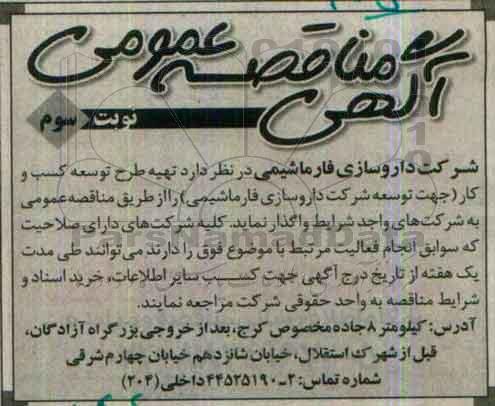 آگهی مناقصه عمومی
نوبت سوم
شرکت داروسازی فارماشیمی در نظر دارد تهیه طرح توسعه کسب و
کار (جهت توسعه شرکت داروسازی فارماشیمی) را از طریق مناقصه عمومی
به شرکت‌های واجد شرایط واگذار نماید. کلیه شرکت‌های دارای صلاحیت
که سوابق انجام فعالیت مرتبط با موضوع فوق را دارند می توانند طی مدت
یک هفته از تاریخ درج آگهی جهت کسب سایر اطلاعات، خرید اسناد و
شرایط مناقصه به واحد حقوقی شرکت مراجعه نمایند.
آدرس: کیلومتر ۸ جاده مخصوص کرج، بعد از خروجی بزرگراه آزادگان،
قبل از شهرک استقلال، خیابان شانزدهم خیابان چهارم شرقی
شماره تماس: ۲-۴۴۵۲۵۱۹۰ داخلی (۲۰۴)